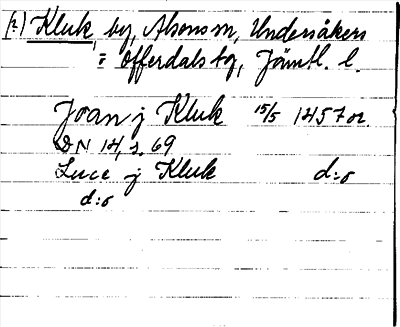 (2) Kluk, by, Alsens sn, Undersåkers
= Offerdals tg, Jämtl. l.
Joan j Kluk 15/5 1457 or.
DN 14, s. 69
Luce j Kluk d:o
d:o